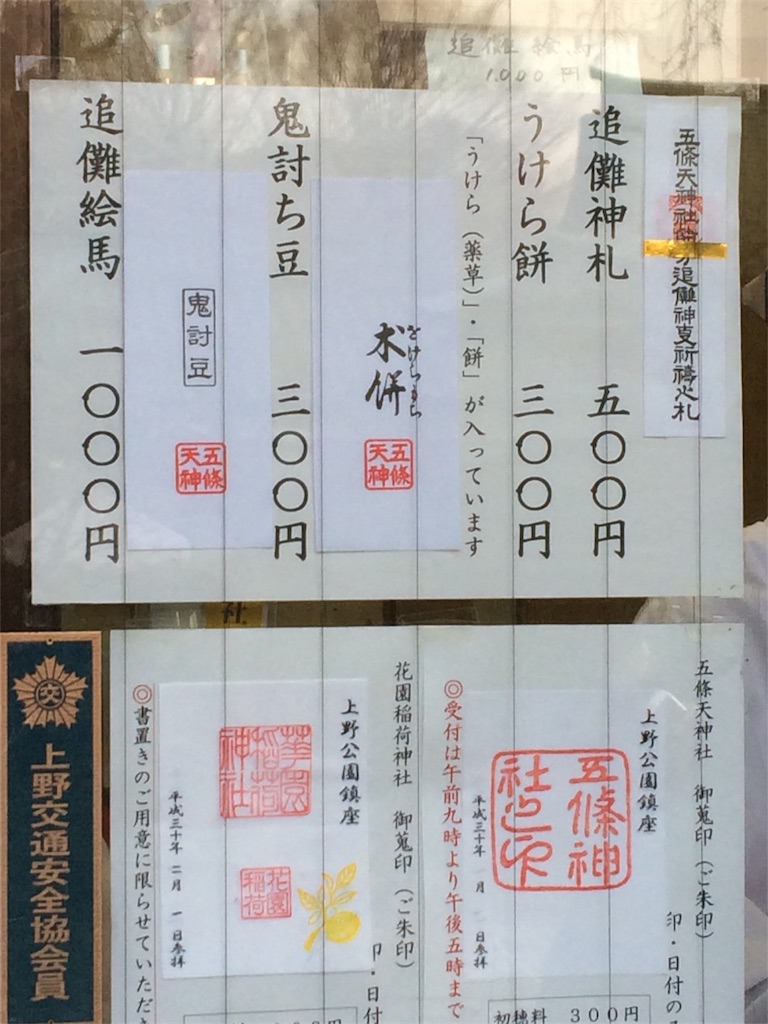 追儺絵馬
1.000円
五條天神社
追儺神事祈祷之札
追儺神札 五〇〇円
うけら餅 三〇〇円
「うけら（薬草）」・「餅」が入っています
をけらもち
朮餅
五條天神
鬼討ち豆 三〇〇円
鬼討豆
五條天神
追儺絵馬 一〇〇〇円
社
五條天神社 御蒐印（ご朱印）
印・日付の
上野公園鎮座
五條神社之印
平成三十年 月 日参拝
◎受付は午前九時より午後五時まで
初穂料 300円
花園稲荷神社 御蒐印（ご朱印）
印・日付
上野公園鎮座
華園稲荷神社
花園稲荷
平成三十年 二月 一日参拝
◎書置きのご用意に限らせていただき
交
上野交通安全協会員